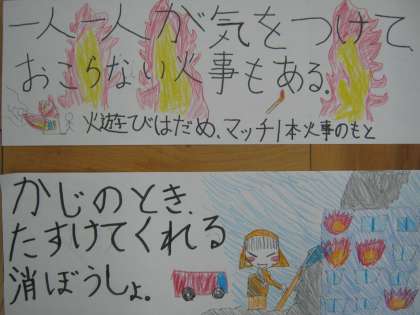 一人一人が気をつけて、
おこらない火事もある。
火遊びはだめ、マッチ1本火事のもと
かじのとき、
たすけてくれる
消ぼうしょ。